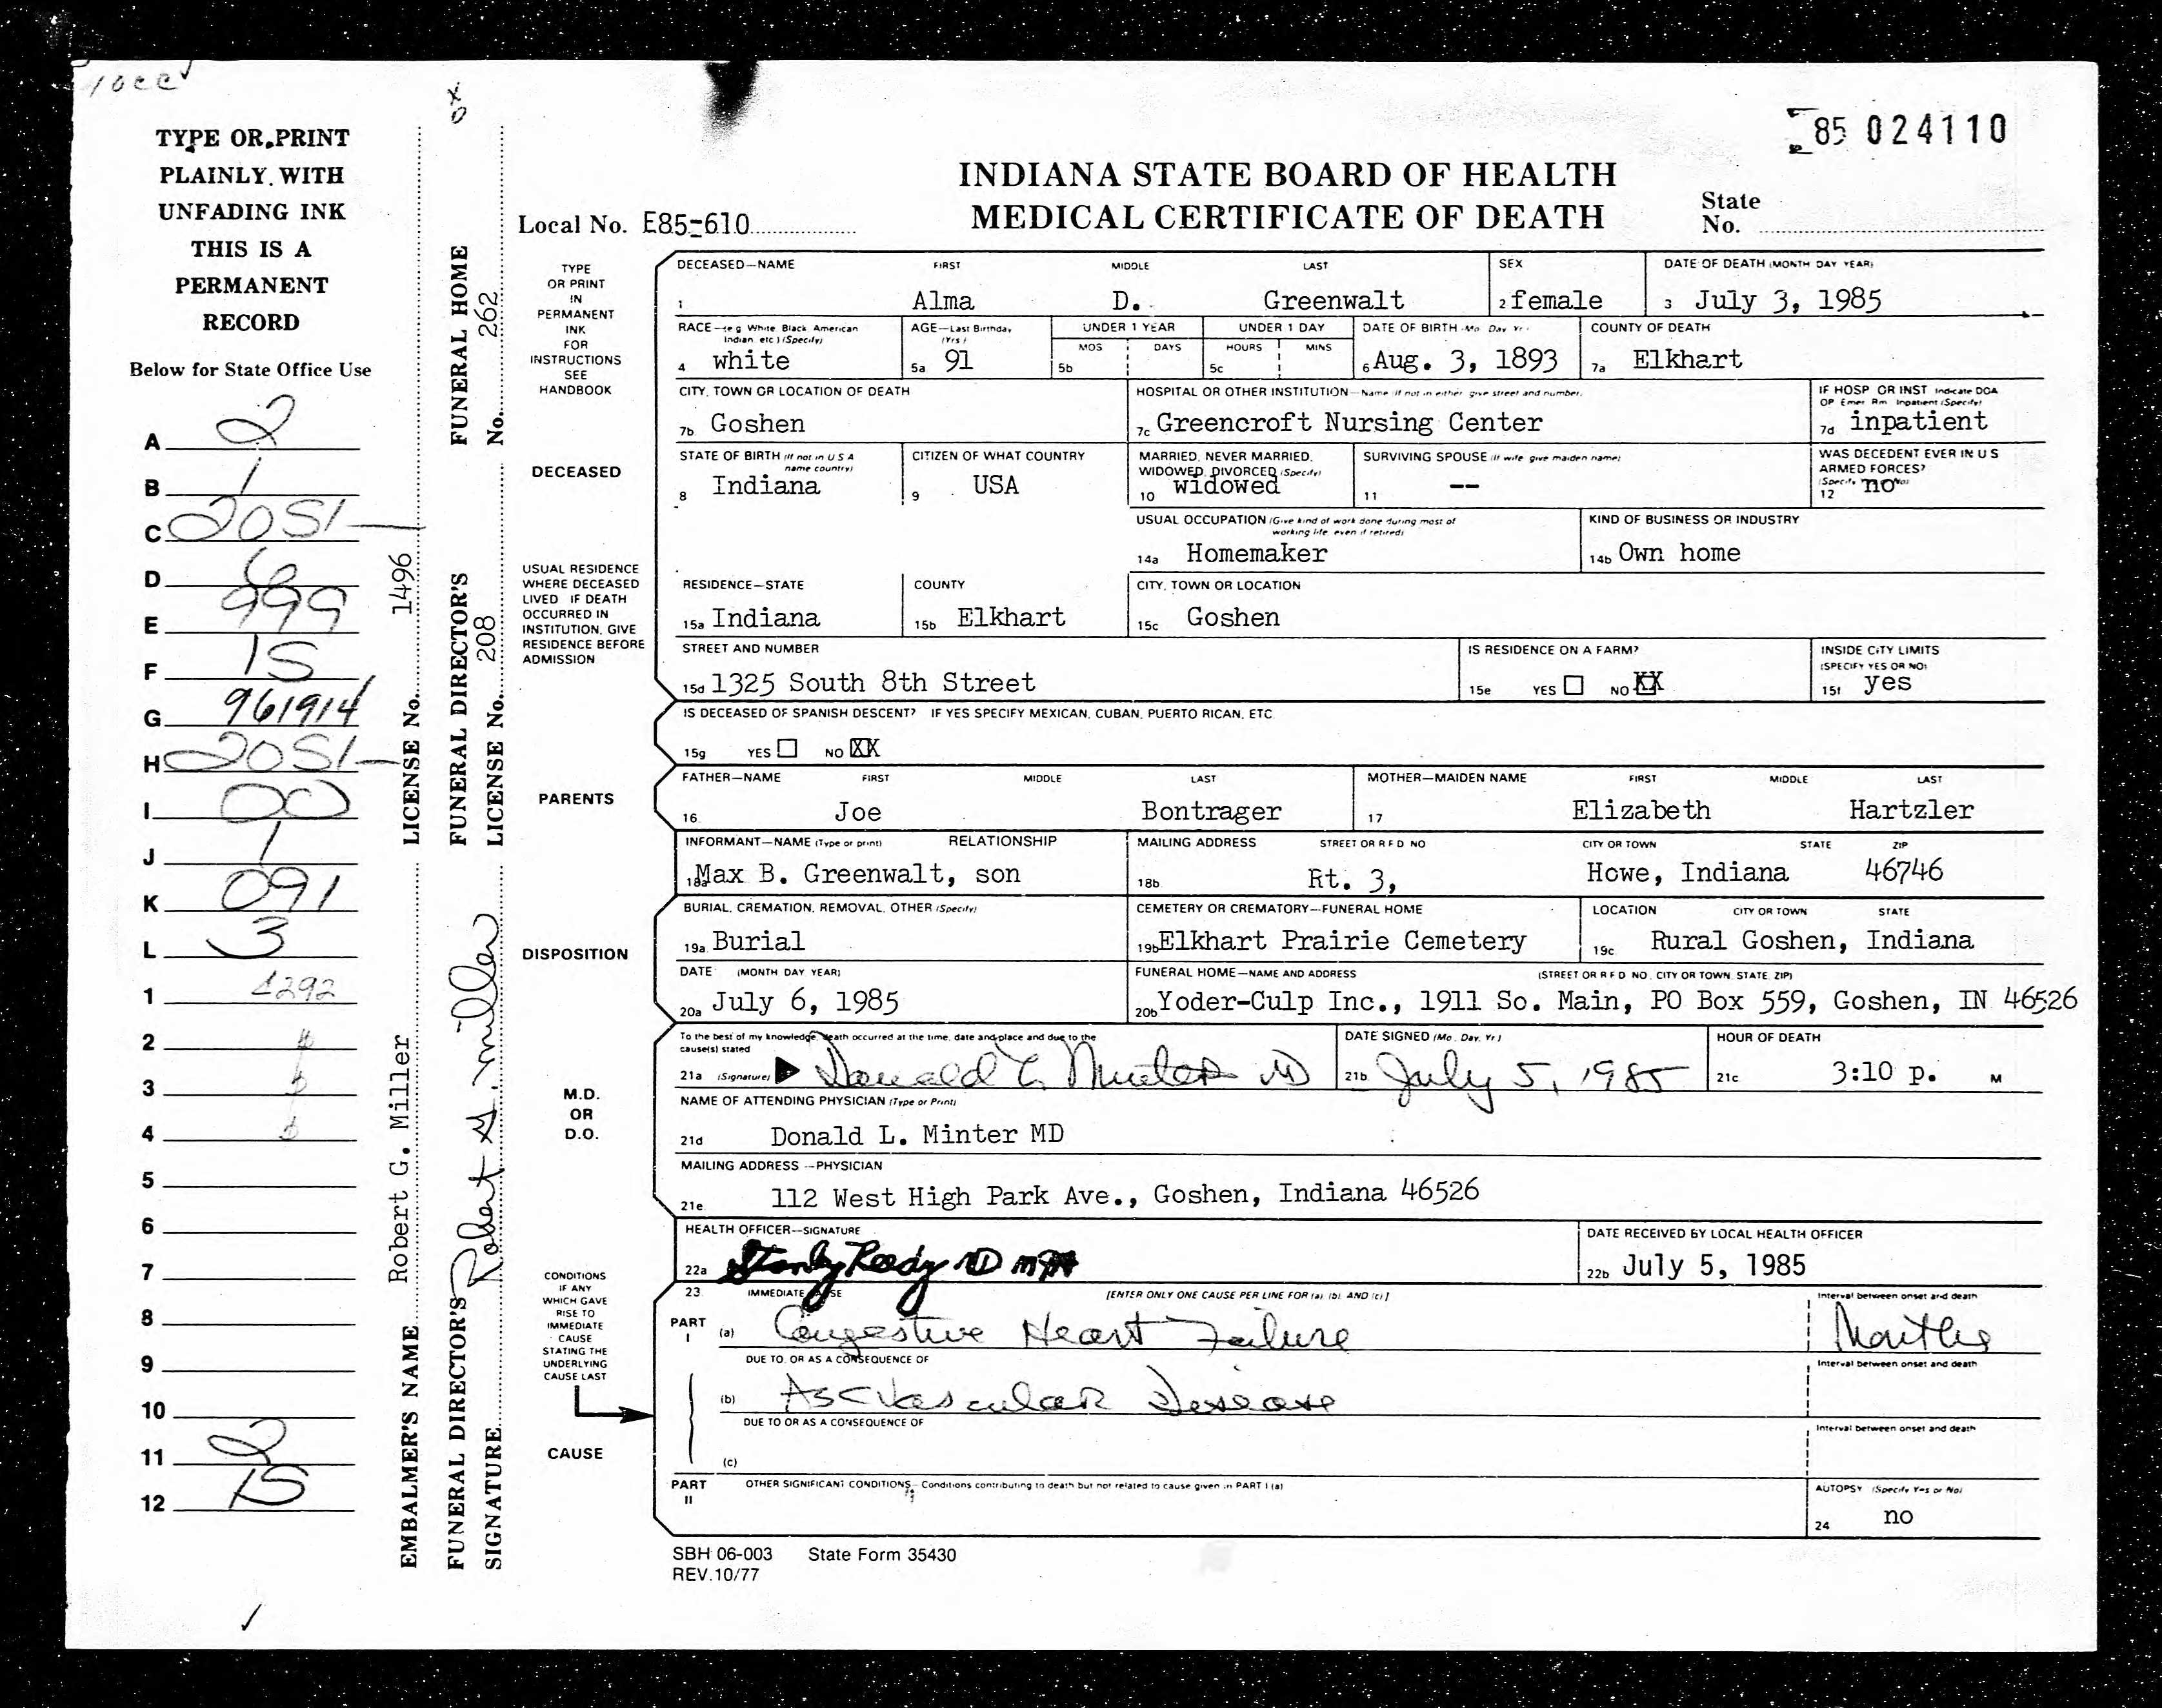 10cc
TYPE OR PRINT
PLAINLY WITH
UNFADING INK
THIS IS A
PERMANENT
RECORD
Below for State Office Use
A 2
B 1
C 2051
D 6
E 999
F 15
G 961914
H 2051
I 00
J 1
K 091
L 3
1 4292
2
3
4
5
6
7
8
9
10
11 2
12 15
EMBALMER'S NAME Robert G. Miller LICENSE No. 1496
FUNERAL DIRECTOR'S
SIGNATURE Robert G. Miller
FUNERAL DIRECTOR'S
LICENSE No. 208
FUNERAL HOME
No. 262
85 024110
INDIANA STATE BOARD OF HEALTH
MEDICAL CERTIFICATE OF DEATH
Local No. E85-610
State
No.
TYPE
OR PRINT
IN
PERMANENT
INK
FOR
INSTRUCTIONS
SEE
HANDBOOK
DECEASED—NAME FIRST MIDDLE LAST SEX DATE OF DEATH (MONTH DAY YEAR)
1 Alma D. Greenwalt 2 female 3 July 3, 1985
RACE—(e g White, Black, American Indian, etc) (Specify) AGE—Last Birthday (Yrs) UNDER 1 YEAR UNDER 1 DAY DATE OF BIRTH (Mo Day Yr) COUNTY OF DEATH
MOS DAYS HOURS MINS
4 white 5a 91 5b 5c 6 Aug. 3, 1893 7a Elkhart
CITY, TOWN OR LOCATION OF DEATH HOSPITAL OR OTHER INSTITUTION—Name (If not in either, give street and number) IF HOSP OR INST Indicate DOA OP Emer Rm Inpatient (Specify)
7b Goshen 7c Greencroft Nursing Center 7d inpatient
DECEASED
STATE OF BIRTH (If not in U S A name country) CITIZEN OF WHAT COUNTRY MARRIED, NEVER MARRIED, WIDOWED, DIVORCED (Specify) SURVIVING SPOUSE (If wife give maiden name) WAS DECEDENT EVER IN U S ARMED FORCES? (Specify Yes or No)
8 Indiana 9 USA 10 widowed 11 -- 12 no
USUAL OCCUPATION (Give kind of work done during most of working life even if retired) KIND OF BUSINESS OR INDUSTRY
14a Homemaker 14b Own home
USUAL RESIDENCE
WHERE DECEASED
LIVED IF DEATH
OCCURRED IN
INSTITUTION, GIVE
RESIDENCE BEFORE
ADMISSION
RESIDENCE—STATE COUNTY CITY, TOWN OR LOCATION
15a Indiana 15b Elkhart 15c Goshen
STREET AND NUMBER IS RESIDENCE ON A FARM? INSIDE CITY LIMITS (SPECIFY YES OR NO)
15d 1325 South 8th Street 15e YES NO XX 15f yes
IS DECEASED OF SPANISH DESCENT? IF YES SPECIFY MEXICAN, CUBAN, PUERTO RICAN, ETC
15g YES NO XX
PARENTS
FATHER—NAME FIRST MIDDLE LAST MOTHER—MAIDEN NAME FIRST MIDDLE LAST
16 Joe Bontrager 17 Elizabeth Hartzler
INFORMANT—NAME (Type or print) RELATIONSHIP MAILING ADDRESS STREET OR R F D NO CITY OR TOWN STATE ZIP
18a Max B. Greenwalt, son 18b Rt. 3, Howe, Indiana 46746
DISPOSITION
BURIAL, CREMATION, REMOVAL, OTHER (Specify) CEMETERY OR CREMATORY—FUNERAL HOME LOCATION CITY OR TOWN STATE
19a Burial 19b Elkhart Prairie Cemetery 19c Rural Goshen, Indiana
DATE (MONTH DAY YEAR) FUNERAL HOME—NAME AND ADDRESS (STREET OR R F D NO, CITY OR TOWN, STATE, ZIP)
20a July 6, 1985 20b Yoder-Culp Inc., 1911 So. Main, PO Box 559, Goshen, IN 46526
M.D.
OR
D.O.
To the best of my knowledge, death occurred at the time, date and place and due to the cause(s) stated DATE SIGNED (Mo, Day, Yr) HOUR OF DEATH
21a (Signature) Donald L. Minter MD 21b July 5, 1985 21c 3:10 p. M
NAME OF ATTENDING PHYSICIAN (Type or Print)
21d Donald L. Minter MD
MAILING ADDRESS—PHYSICIAN
21e 112 West High Park Ave., Goshen, Indiana 46526
HEALTH OFFICER—SIGNATURE DATE RECEIVED BY LOCAL HEALTH OFFICER
22a Stanly Reedy MD MPH 22b July 5, 1985
CONDITIONS
IF ANY
WHICH GAVE
RISE TO
IMMEDIATE
CAUSE
STATING THE
UNDERLYING
CAUSE LAST
CAUSE
23 IMMEDIATE CAUSE [ENTER ONLY ONE CAUSE PER LINE FOR (a), (b), AND (c)] Interval between onset and death
PART I (a) Congestive Heart Failure Months
DUE TO, OR AS A CONSEQUENCE OF Interval between onset and death
(b) ASCVascular Disease
DUE TO OR AS A CONSEQUENCE OF Interval between onset and death
(c)
PART II OTHER SIGNIFICANT CONDITIONS—Conditions contributing to death but not related to cause given in PART I (a) AUTOPSY (Specify Yes or No)
24 no
SBH 06-003 State Form 35430
REV.10/77